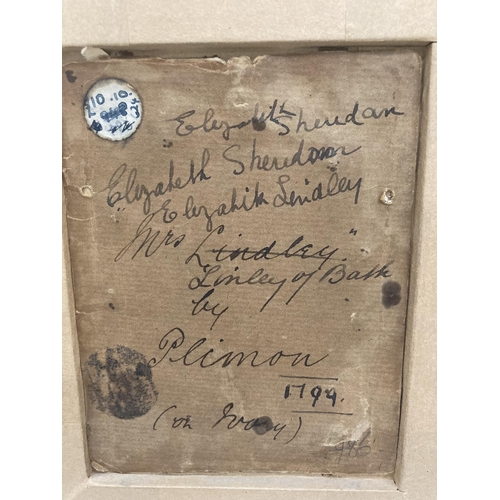 £10.10.
"Elizabeth Sheridan
"Elizabeth Sheridan
Elizabeth Lindley
Mrs Lindley."
Linley of Bath
by
Plimon
1794.
(on Ivory)